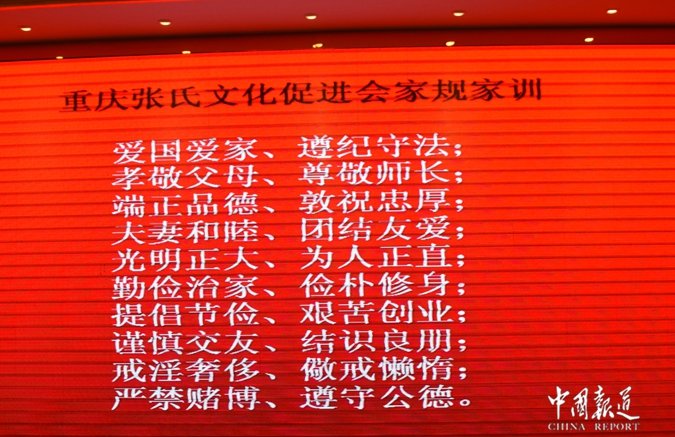 重庆张氏文化促进会家规家训
爱国爱家、遵纪守法；
孝敬父母、尊敬师长；
端正品德、敦祝忠厚；
夫妻和睦、团结友爱；
光明正大、为人正直；
勤俭治家、俭朴修身；
提倡节俭、艰苦创业；
谨慎交友、结识良朋；
戒淫奢侈、儆戒懒惰；
严禁赌博、遵守公德。
中國報道
CHINA REPORT